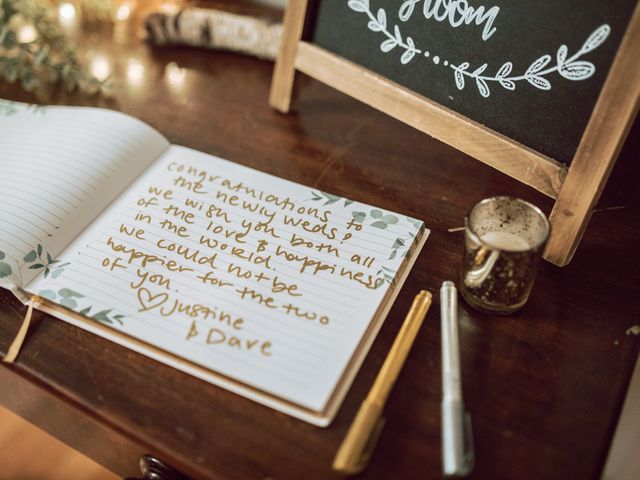 groom
congratulations to
the newly weds!
we wish you both all
of the love & happiness
in the world.
we could not be
happier for the two
of you.
♡ Justine
& Dave